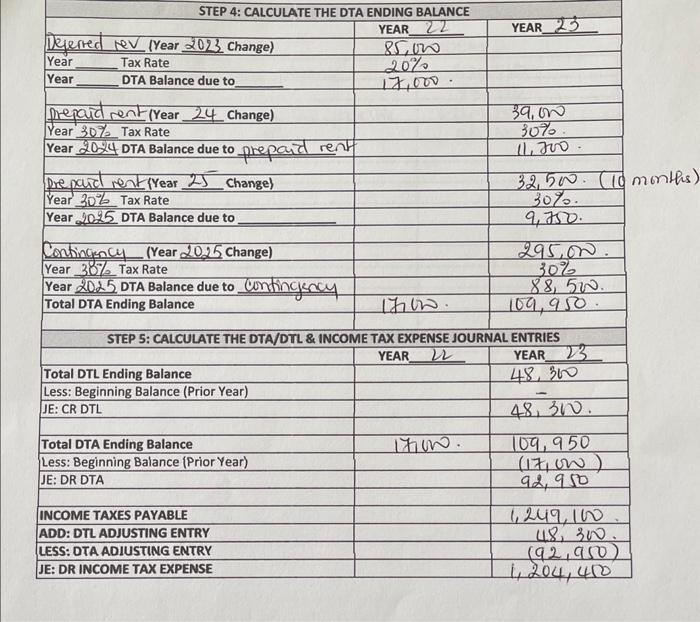 STEP 4: CALCULATE THE DTA ENDING BALANCE
YEAR 22 YEAR 23
Deferred rev (Year 2023 Change) 85,000
Year Tax Rate 20%
Year DTA Balance due to 17,000.
prepaid rent (Year 24 Change) 39,000
Year 30% Tax Rate 30%.
Year 2024 DTA Balance due to prepaid rent 11,700.
prepaid rent (Year 25 Change) 32,500. (10 months)
Year 30% Tax Rate 30%.
Year 2025 DTA Balance due to 9,750.
Contingency (Year 2025 Change) 295,000.
Year 30% Tax Rate 30%
Year 2025 DTA Balance due to Contingency 88,500.
Total DTA Ending Balance 17,000. 109,950.
STEP 5: CALCULATE THE DTA/DTL & INCOME TAX EXPENSE JOURNAL ENTRIES
YEAR 22 YEAR 23
Total DTL Ending Balance 48,300
Less: Beginning Balance (Prior Year) –
JE: CR DTL 48,300.
Total DTA Ending Balance 17,000. 109,950
Less: Beginning Balance (Prior Year) (17,000)
JE: DR DTA 92,950
INCOME TAXES PAYABLE 1,249,100.
ADD: DTL ADJUSTING ENTRY 48,300.
LESS: DTA ADJUSTING ENTRY (92,950)
JE: DR INCOME TAX EXPENSE 1,204,450